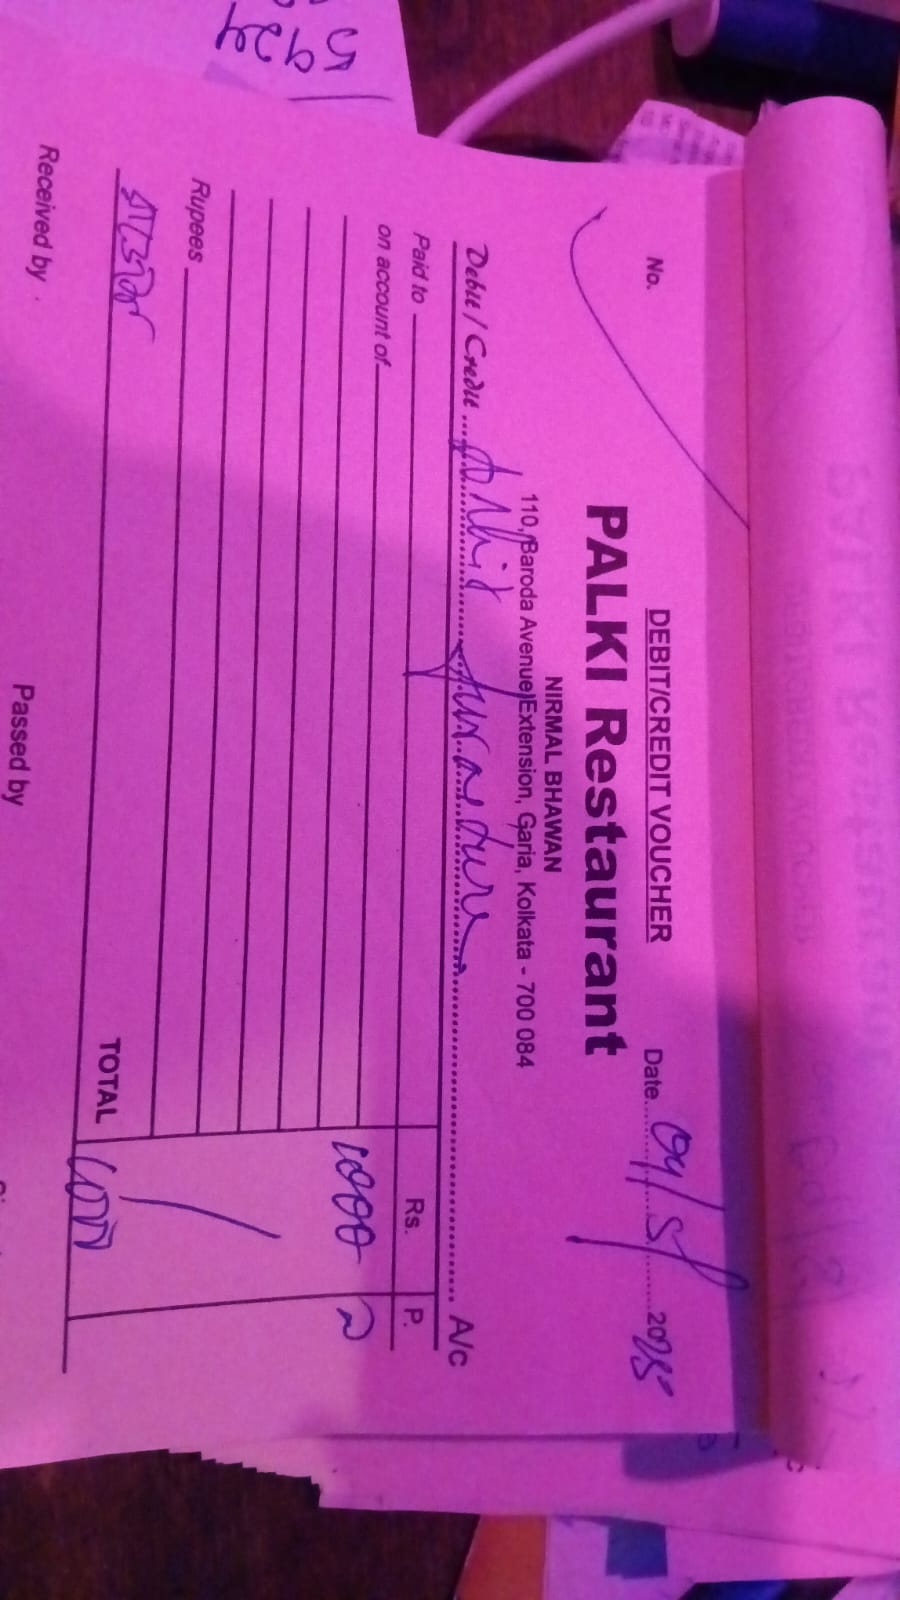 5924
No.
DEBIT/CREDIT VOUCHER
Date 2025
PALKI Restaurant
NIRMAL BHAWAN
110, Baroda Avenue Extension, Garia, Kolkata - 700 084
Debit / Credit A/c
Paid to Rs. P.
on account of 1000
Rupees
TOTAL 1000
Received by Passed by